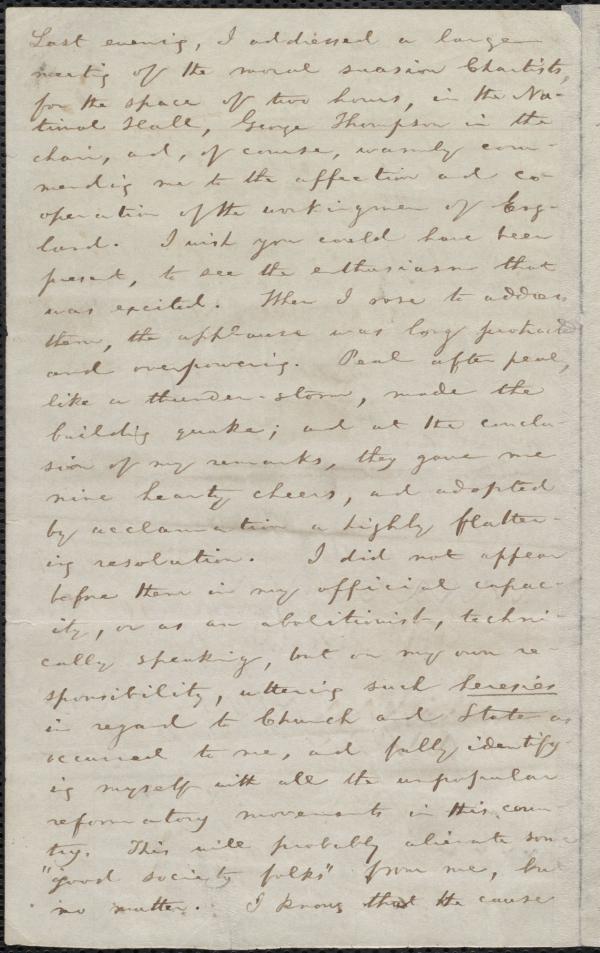 Last evening, I addressed a large
meeting of the moral suasion Chartists,
for the space of two hours, in the Na-
tional Hall, George Thompson in the
chair, and, of course, warmly com-
mending me to the affection and co-
operation of the workingmen of Eng-
land. I wish you could have been
present, to see the enthusiasm that
was excited. When I rose to address
them, the applause was long protracted
and overpowering. Peal after peal,
like a thunder-storm, made the
building quake; and at the conclu-
sion of my remarks, they gave me
nine hearty cheers, and adopted
by acclamation a highly flatter-
ing resolution. I did not appear
before them in my official capac-
ity, or as an abolitionist, techni-
cally speaking, but on my own re-
sponsibility, uttering such heresies
in regard to Church and State as
occurred to me, and fully identify-
ing myself with all the unpopular
reformatory movements in this coun-
try. This will probably alienate some
"good society folks" from me, but
no matter. I know that the cause